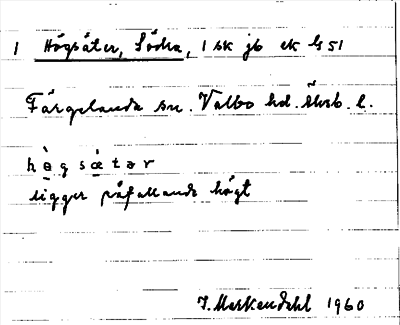 1 Högsäter, Södra, 1 sk jb ek G 51
Färgelanda sn. Valbo hd. Älvsb. l.
hø̀gsæ̀tər
ligger påfallande högt
J. Markendahl 1960